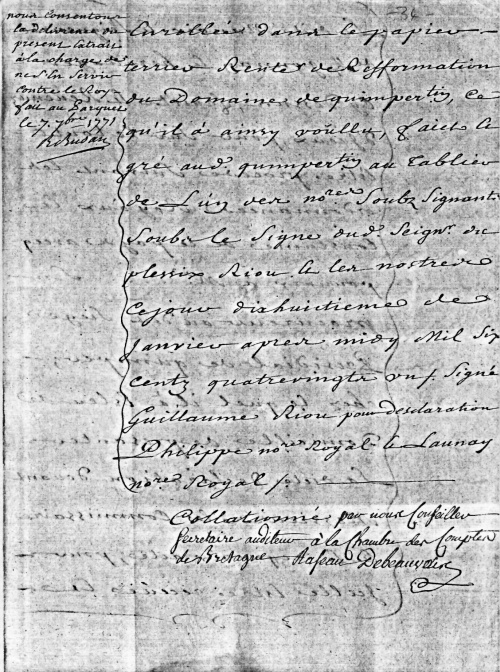 nous consentons
la délivrance du
present extrait
à la charge de
ne s'en servir
contre le Roy
fait au parquet
le 7. 7bre 1771
Enrollée dans le papier
terrier Rentes de Refformation
du Domaine de quimpertin, ce
qu'il à ainsy voullu, faict le
gré aud. quimpertin au Tablier
de L'un des nores Soubz Signants
Soubz le Signe dud. Seignr. du
plessix Riou & les nostres
Ce jour dixhuitieme de
Janvier apres midy Mil Six
centz quatrevingts un /. Signé
Guillaume Riou pour desclaration
Philippe nore. Royal & Launay
nore. Royal /.
Collationné par nous Conseiller
Secretaire auditeur à la Chambre des Comptes
de Bretagne Debeauvoir